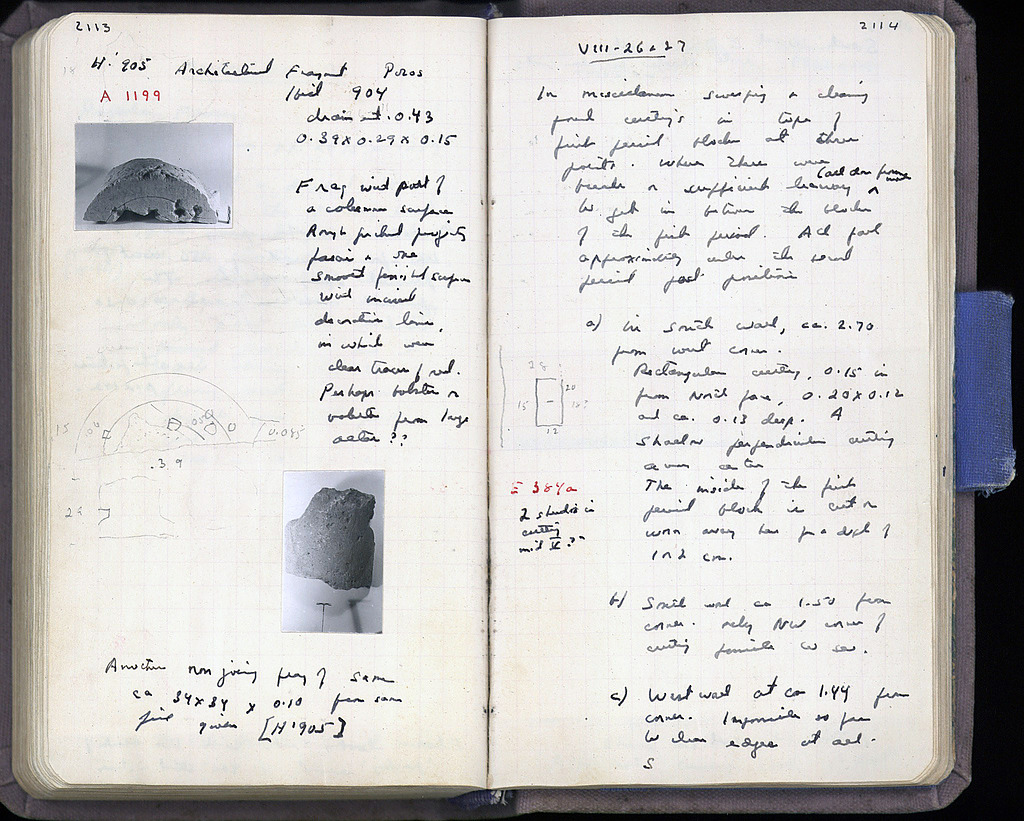 2113
H' 905 Architectural Fragment Poros
A 1199
Ibid 904
drain at 0.43
0.39 x 0.29 x 0.15
Frag with part of
a column surface
Rough picked
fascia & one
smooth finished surface
with incised
decorative line,
in which were
clear traces of red.
Perhaps bolster or
volute from large
altar ??
15
0.045
.39
29
Another non joining frag of same
ca 34 x 34 x 0.10 from same
[H' 905]
2114
VIII-26 & 27
In miscellaneous sweeping & cleaning
found cuttings in top of
first period blocks at three
points. Where there were
breaks or sufficient leeway
to get in between the blocks
of the first period. All found
approximately under the second
period post positions
a) In South wall, ca. 2.70
from west corner.
Rectangular cutting, 0.15 in
from North face, 0.20 x 0.12
and ca. 0.13 deep. A
shallow perpendicular cutting
across center
The inside of the first
period block is cut or
worn away here for a depth of
1 or 2 cm.
28
20
15
12
E 384a
2 sherds in
cutting
mid V ??
b) South wall ca 1.50 from
corner. only NW corner of
cutting possible to see.
c) West wall at ca 1.44 from
corner. Impossible so far
to clear edges at all.
S